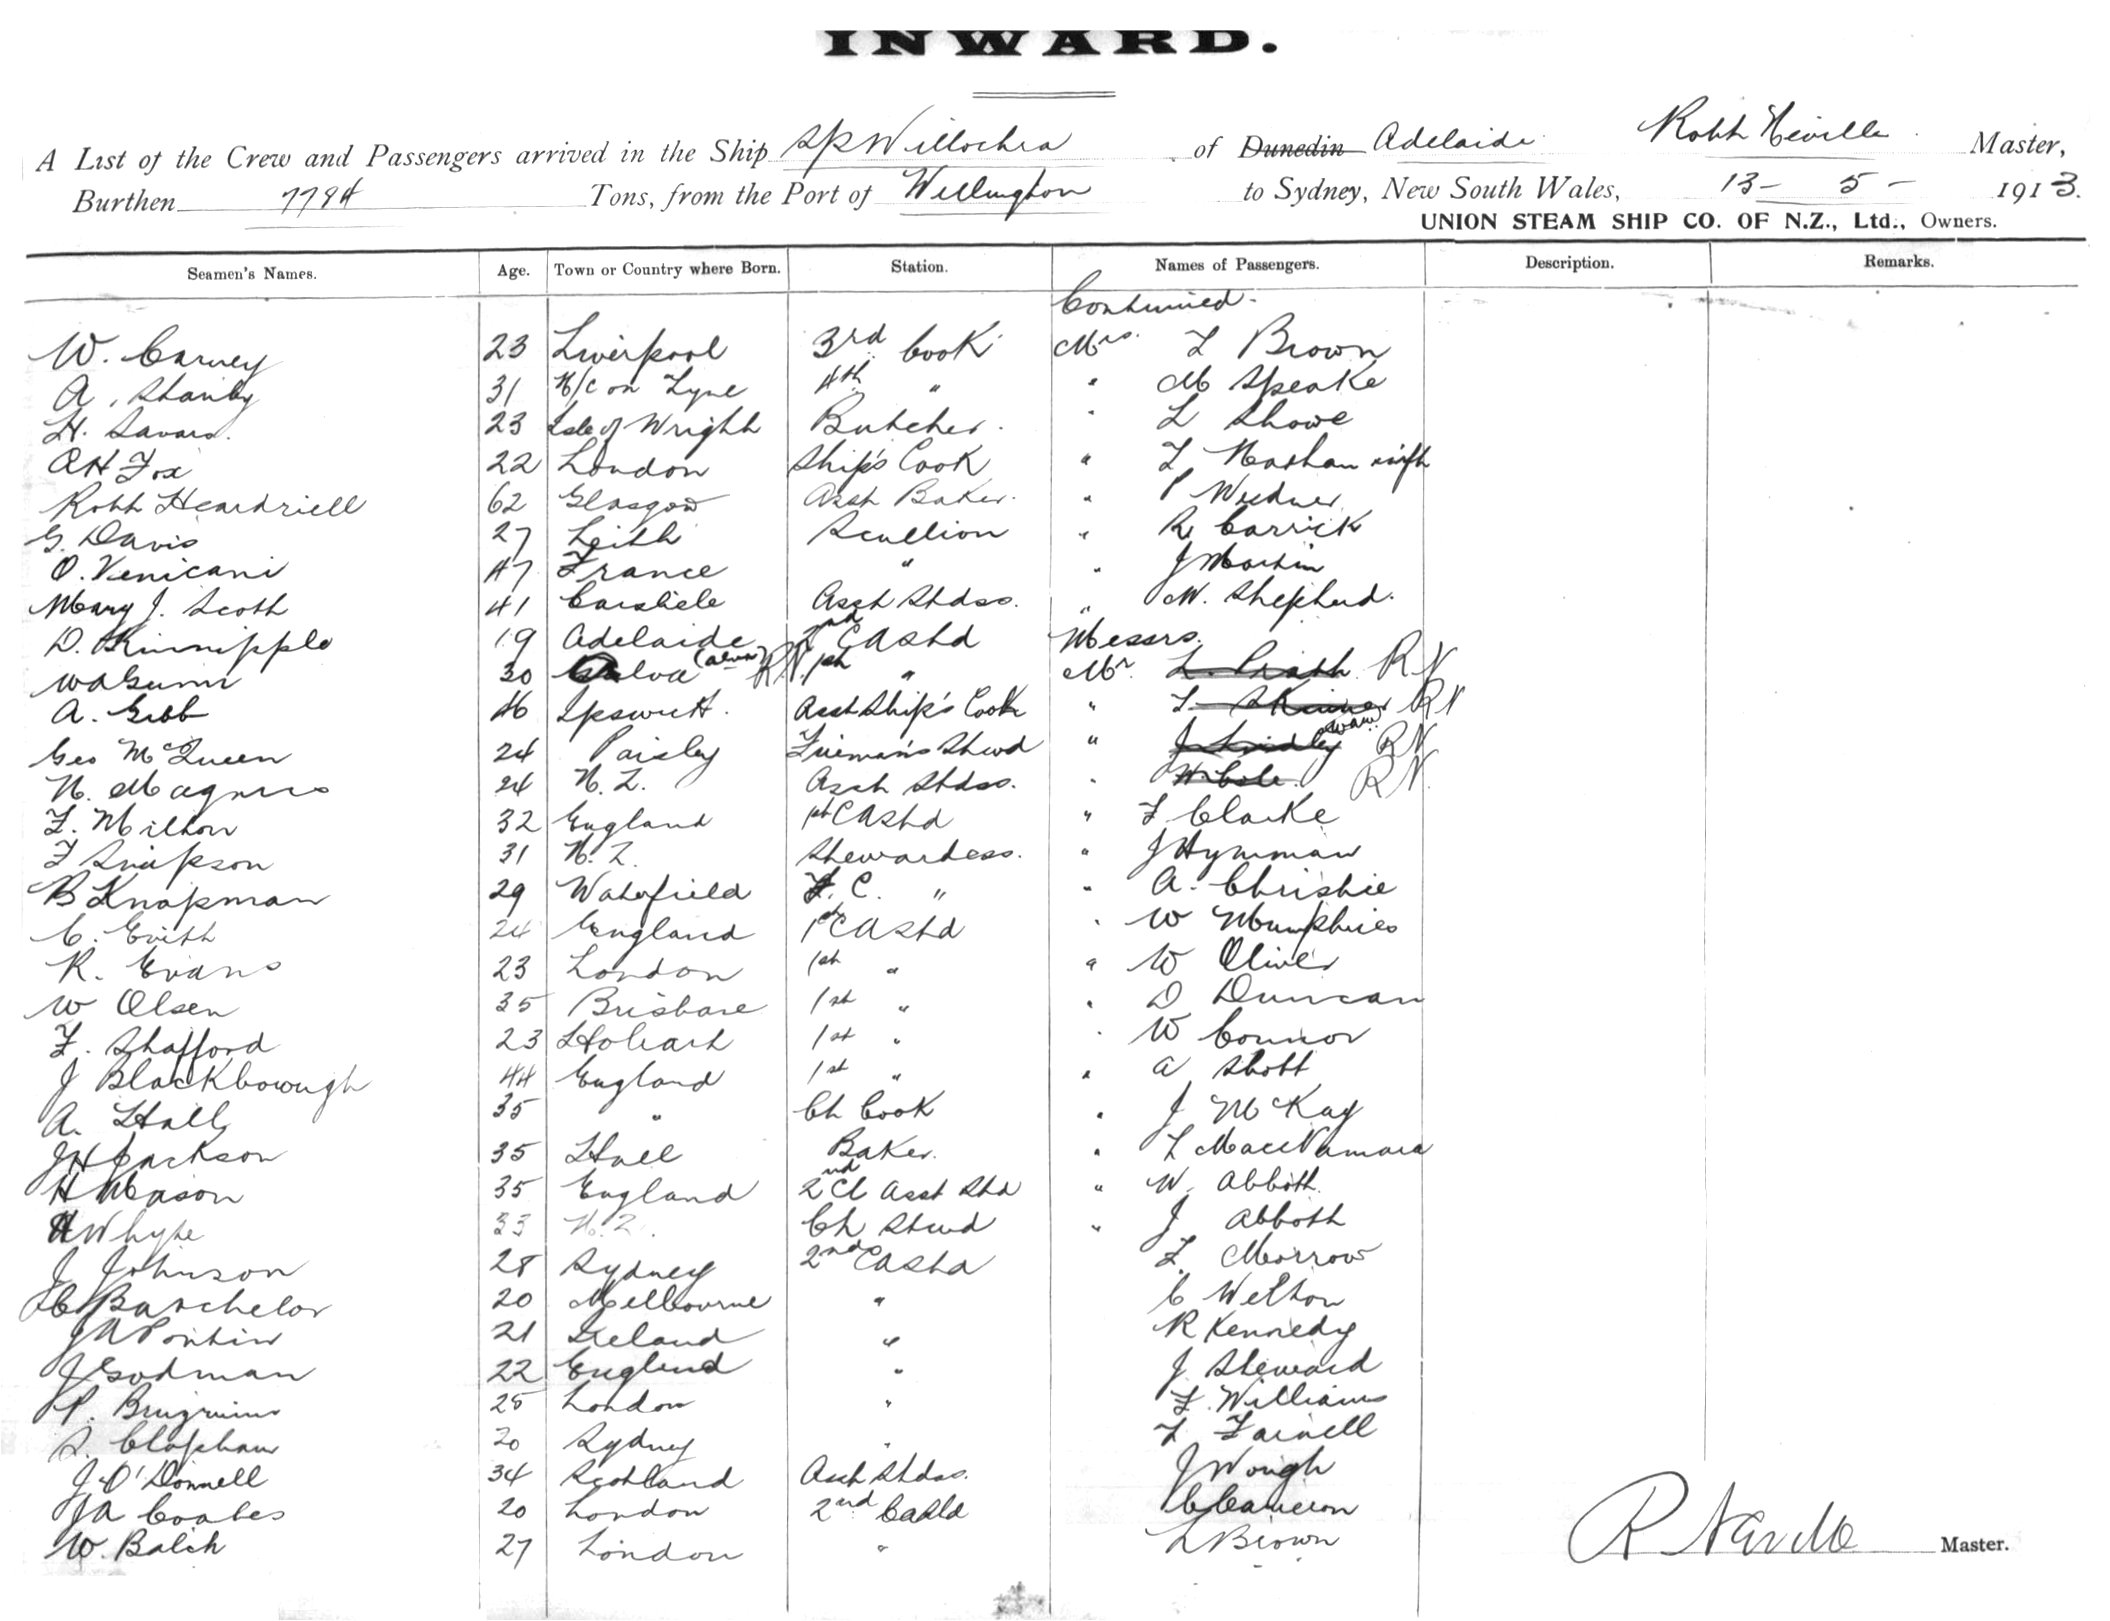 INWARD.
A List of the Crew and Passengers arrived in the Ship SS Willochra of Dunedin Adelaide Robt Neville Master,
Burthen 7784 Tons, from the Port of Wellington to Sydney, New South Wales, 13 - 5 - 1913.
UNION STEAM SHIP CO. OF N.Z., Ltd., Owners.
Seamen's Names. Age. Town or Country where Born. Station. Names of Passengers. Description. Remarks.
Continued.
W. Carney 23 Liverpool 3rd Cook Mrs. L Brown
A. Stanley 31 N/C on Tyne 4th " " M Speake
H. 23 Isle of Wright Butcher. " L Showe
A H Fox 22 London Ship's Cook " L Nathan
Robt Heardriell 62 Glasgow Asst Baker. " P
G. Davis 27 Leith Scullion " R Carrick
O. Venicani 47 France " " J Martin
Mary J. Scott 41 Carslile Asst Stdss. " M. Shepherd.
D. Kinnipple 19 Adelaide 2nd C A Std Messrs.
W A Gunn 30 alva (alva) R.N. 1st " Mr. L. Prath R N
A. Gibb 46 Ipswitt. Asst Ship's Cook " L Skinner R N
Geo McQueen 24 Paisley Fireman's Stwd " J Lindley R N
N. Magnus 24 N. Z. Asst Stdss. " H Cole R N.
F. Milton 32 England 1st C A Std " F Clarke
F Simpson 31 N. Z. Stewardess. " J Hymman
B Knapman 29 Wakefield F. C. " " A. Christie
C. Evitt 24 England 1st C A Std " W Humphries
R. Evans 23 London 1st " " W Oliver
W Olsen 35 Brisbane 1st " " D Duncan
F. Stafford 23 Hobart 1st " " W Connor
J Blackborough 44 England 1st " " A Stott
A. Hall 35 " Ch Cook " J McKay
J H Jackson 35 Hull Baker. " L MacNamara
H Mason 35 England 2nd Cl Asst Std " W. Abbott
H Whyte 33 N. Z. Ch Stwd " J Abbott
J Johnson 28 Sydney 2nd C A Std F. Morrow
C Batchelor 20 Melbourne " C Welton
J A Pontin 21 Ireland " R Kennedy
J Godman 22 England " J Steward
P. 25 London " F. Williams
S. Clapham 20 Sydney " F Farnell
J. O'Donnell 34 Scotland Asst Stdss. J Wough
J A Coates 20 London 2nd C A Std C Cameron
W. Balch 27 London " L Brown
R Neville Master.